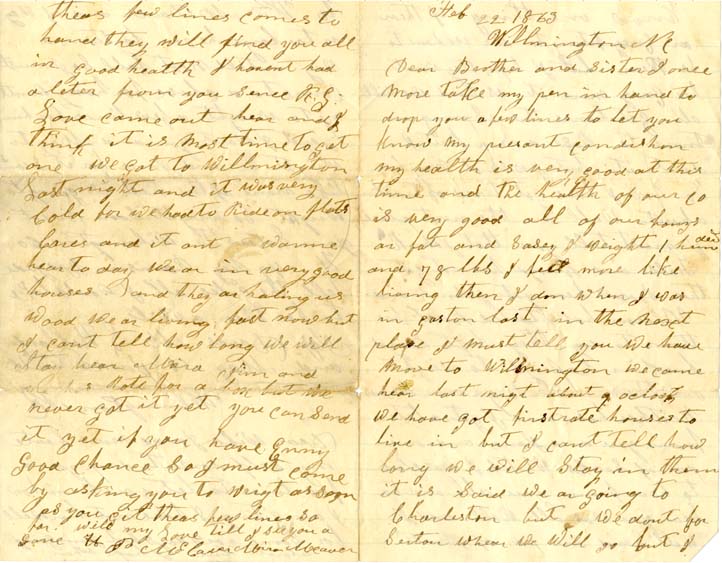 Feb 22 1863
Wilmington NC
Dear Brother and Sister I once
more take my pen in hand to
drop you a few lines to let you
know my pesant condishon
my health is very good at this
time and the health of our co
is very good all of our boys
ar fat and Sasey I weight 1 hundred
and 78 lbs I feel more like
living then I don when I was
in gaston last in the next
place I must tell you we have
move to Wilmington we came
hear last nigt about 9 oclock
we have got firstrate houses to
live in but I cant tell how
long we will Stay in them
it is Said we ar going to
Charleston but we dont for
Serton whear we will go but I
theas few lines comes to
hand they will find you all
in good health I havent had
a leter from you sence R. G.
Love came out hear and I
think it is most time to get
one we got to Willmington
Last night and it was very
Cold for we had to Ride on flats
Cares and it ant warme
hear to day we ar in very good
houses and they ar haling us
wood we ar living fast now but
I cant tell how long we will
Stay hear
Rote for a box but we
never got it yet you can send
it yet if you have Enny
Good Chance So I must come
by asking you to wrigt as soon
as you git theas few lines so
far well my Love till I see you a
gane